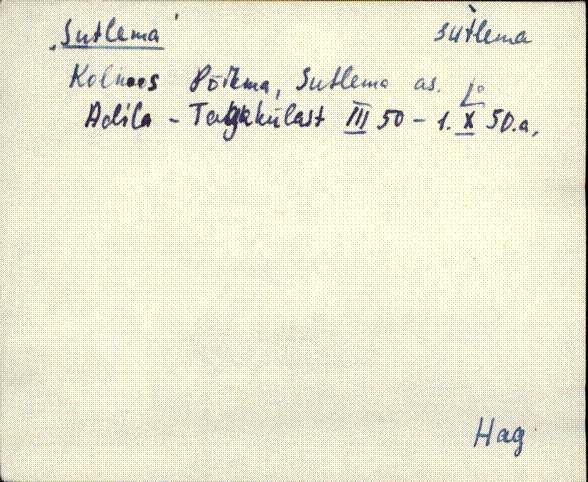 „Sutlema" sutlema
Kolhoos Põikma, Sutlema as.
Adila - küiast III 50 - 1. X 50.a,
Hag